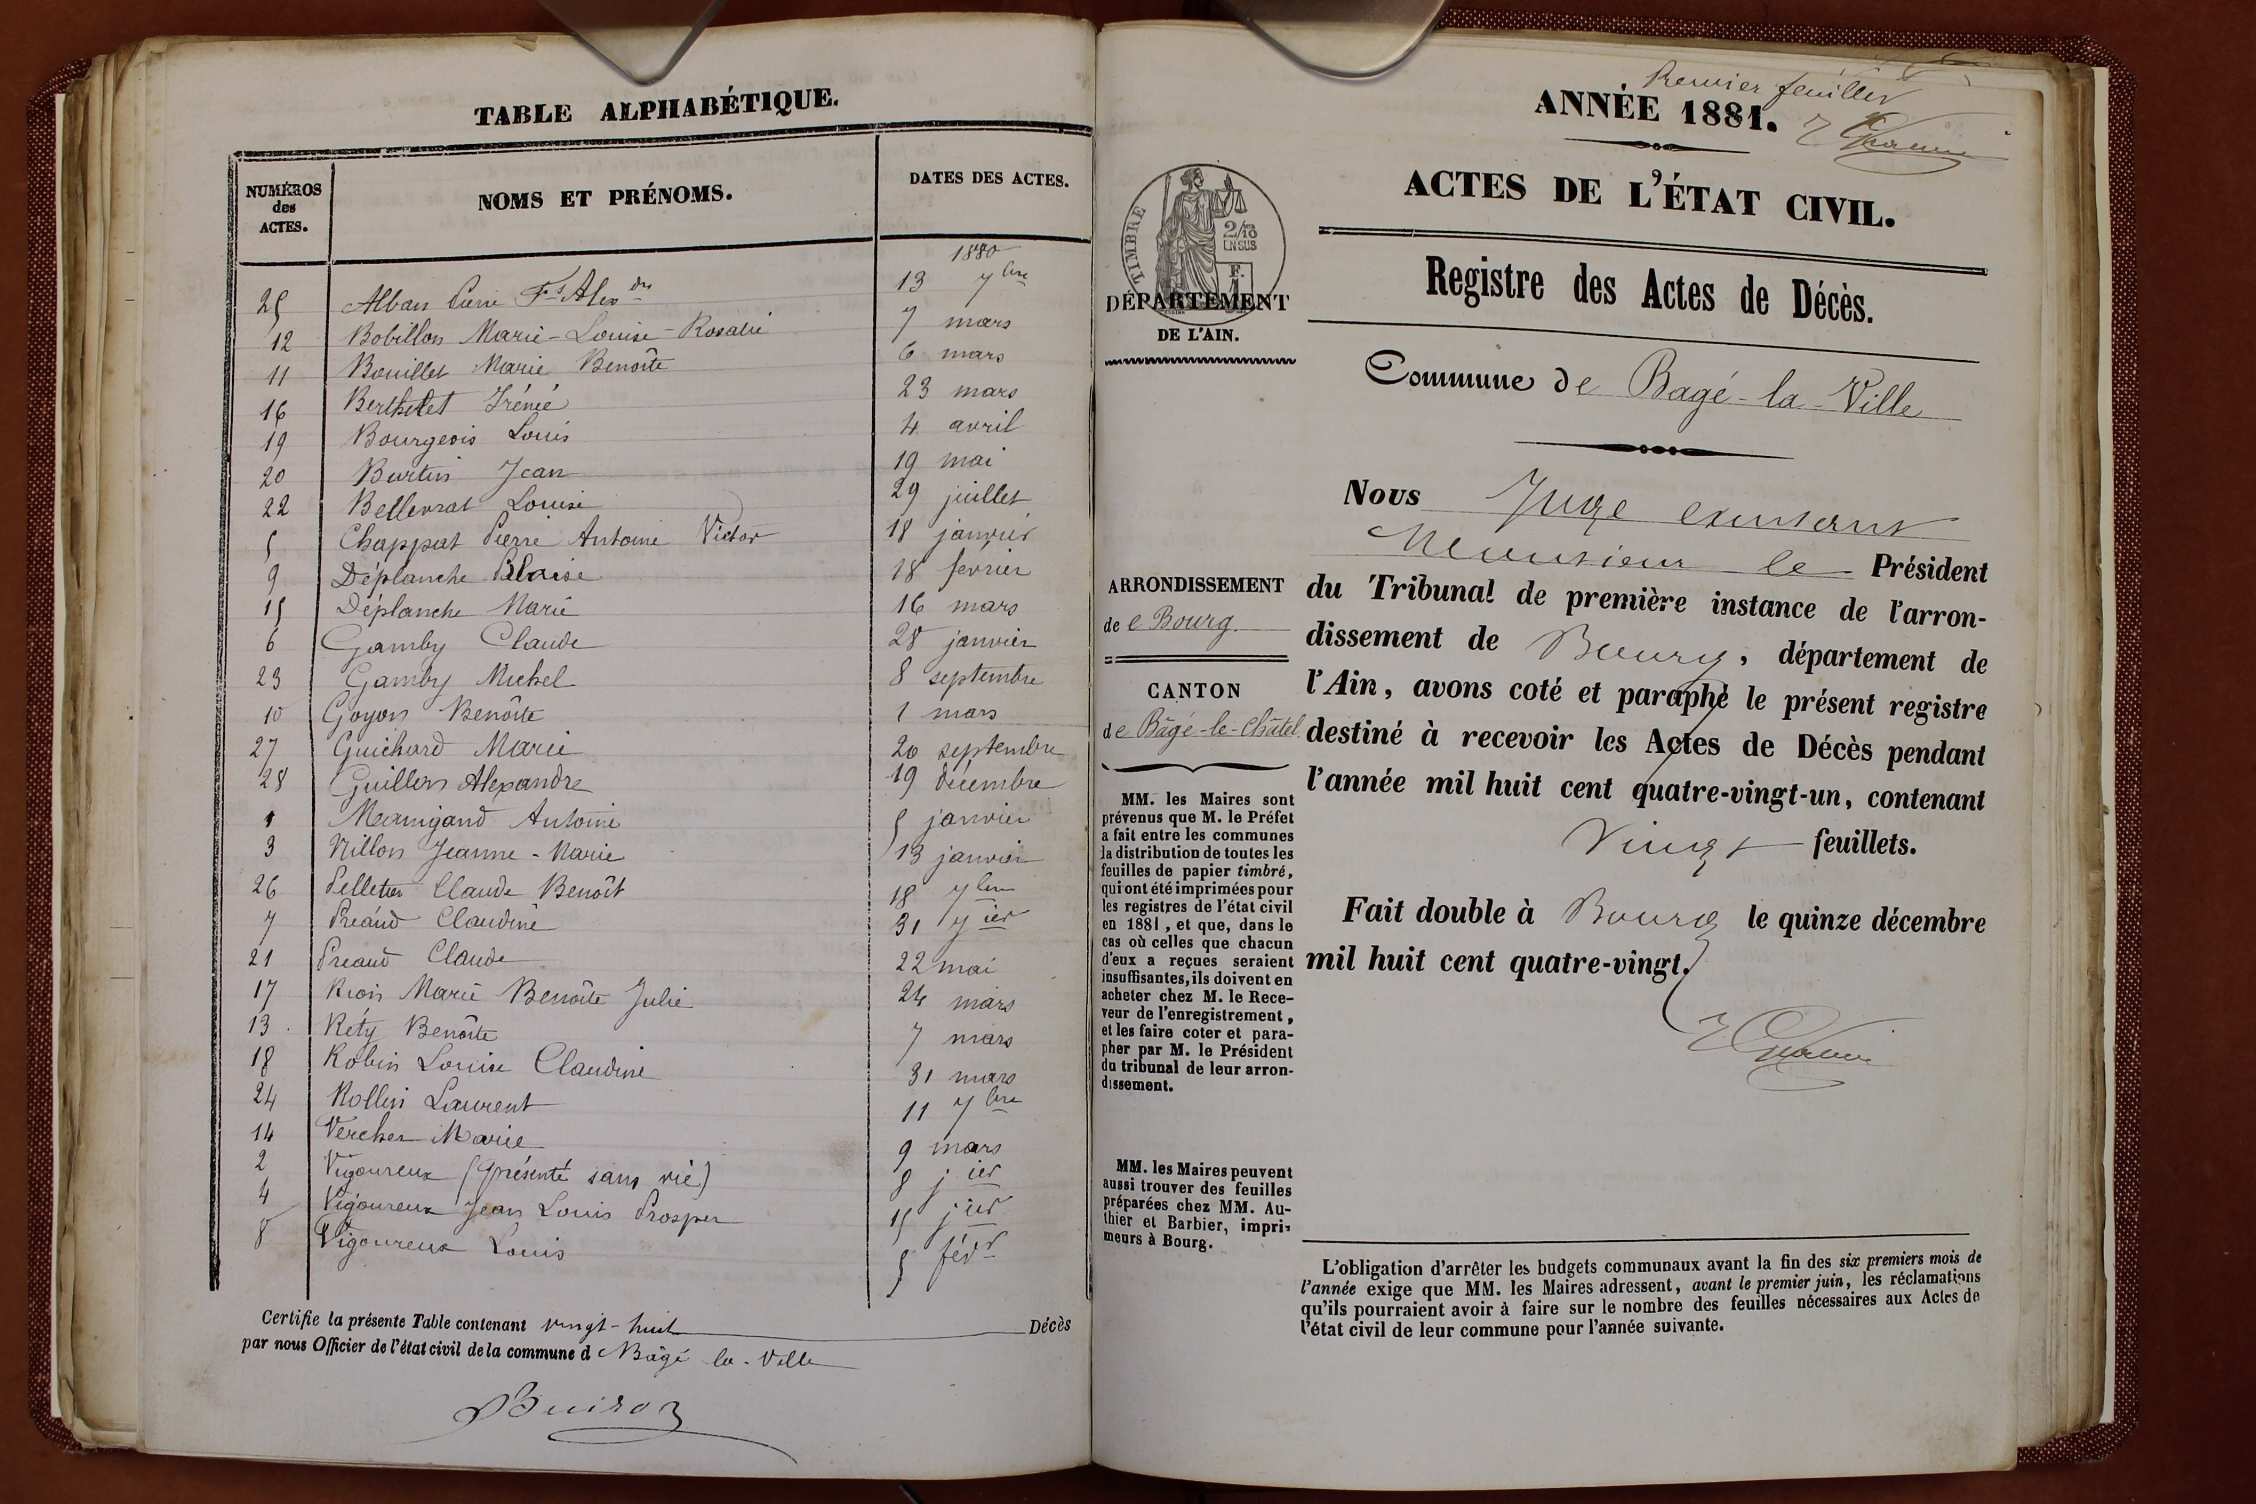 TABLE ALPHABÉTIQUE.
NUMÉROS des ACTES. NOMS ET PRÉNOMS. DATES DES ACTES.
1880
25 Alban Pierre Fs Alexdre 13 7bre
12 Bobillon Marie-Louise-Rosalie 7 mars
11 Bouillet Marie Benoîte 6 mars
16 Berthelet Irénée 23 mars
19 Bourgeois Louis 4 avril
20 Burtin Jean 19 mai
22 Bellevrat Louise 29 juillet
5 Chappat Pierre Antoine Victor 18 janvier
9 Déplanche Blaise 18 février
15 Déplanche Marie 16 mars
6 Gamby Claude 28 janvier
23 Gamby Michel 8 septembre
10 Goyon Benoîte 1 mars
27 Guichard Marie 20 septembre
28 Guillon Alexandre 19 décembre
1 Manigand Antoine 5 janvier
3 Nillon Jeanne-Marie 13 janvier
26 Pelletier Claude Benoît 18 7bre
7 Préaud Claudine 31 jier
21 Préaud Claude 22 mai
17 Rion Marie Benoîte Julie 24 mars
13 Réty Benoîte 7 mars
18 Robin Louise Claudine 31 mars
24 Rollin Laurent 11 7bre
14 Vercher Marie 9 mars
2 Vigoureux (présenté sans vie) 8 jier
4 Vigoureux Jean Louis Prosper 15 jier
8 Vigoureux Louis 5 févr
Certifie la présente Table contenant vingt-huit Décès
par nous Officier de l'état civil de la commune d Bâgé-la-Ville
Buiron
Premier feuillet
ANNÉE 1881.
ACTES DE L'ÉTAT CIVIL.
TIMBRE
2/10 EN SUS
DÉPARTEMENT
DE L'AIN.
Registre des Actes de Décès.
Commune de Bagé-la-Ville
ARRONDISSEMENT
de Bourg
CANTON
de Bâgé-le-Châtel
MM. les Maires sont
prévenus que M. le Préfet
a fait entre les communes
la distribution de toutes les
feuilles de papier timbré,
qui ont été imprimées pour
les registres de l'état civil
en 1881, et que, dans le
cas où celles que chacun
d'eux a reçues seraient
insuffisantes, ils doivent en
acheter chez M. le Rece-
veur de l'enregistrement,
et les faire coter et para-
pher par M. le Président
du tribunal de leur arron-
dissement.
MM. les Maires peuvent
aussi trouver des feuilles
préparées chez MM. Au-
thier et Barbier, impri-
meurs à Bourg.
Nous Juge exerçant
Monsieur le Président
du Tribunal de première instance de l'arron-
dissement de Bourg, département de
l'Ain, avons coté et paraphé le présent registre
destiné à recevoir les Actes de Décès pendant
l'année mil huit cent quatre-vingt-un, contenant
Vingt feuillets.
Fait double à Bourg le quinze décembre
mil huit cent quatre-vingt.
L'obligation d'arrêter les budgets communaux avant la fin des six premiers mois de
l'année exige que MM. les Maires adressent, avant le premier juin, les réclamations
qu'ils pourraient avoir à faire sur le nombre des feuilles nécessaires aux Actes de
l'état civil de leur commune pour l'année suivante.